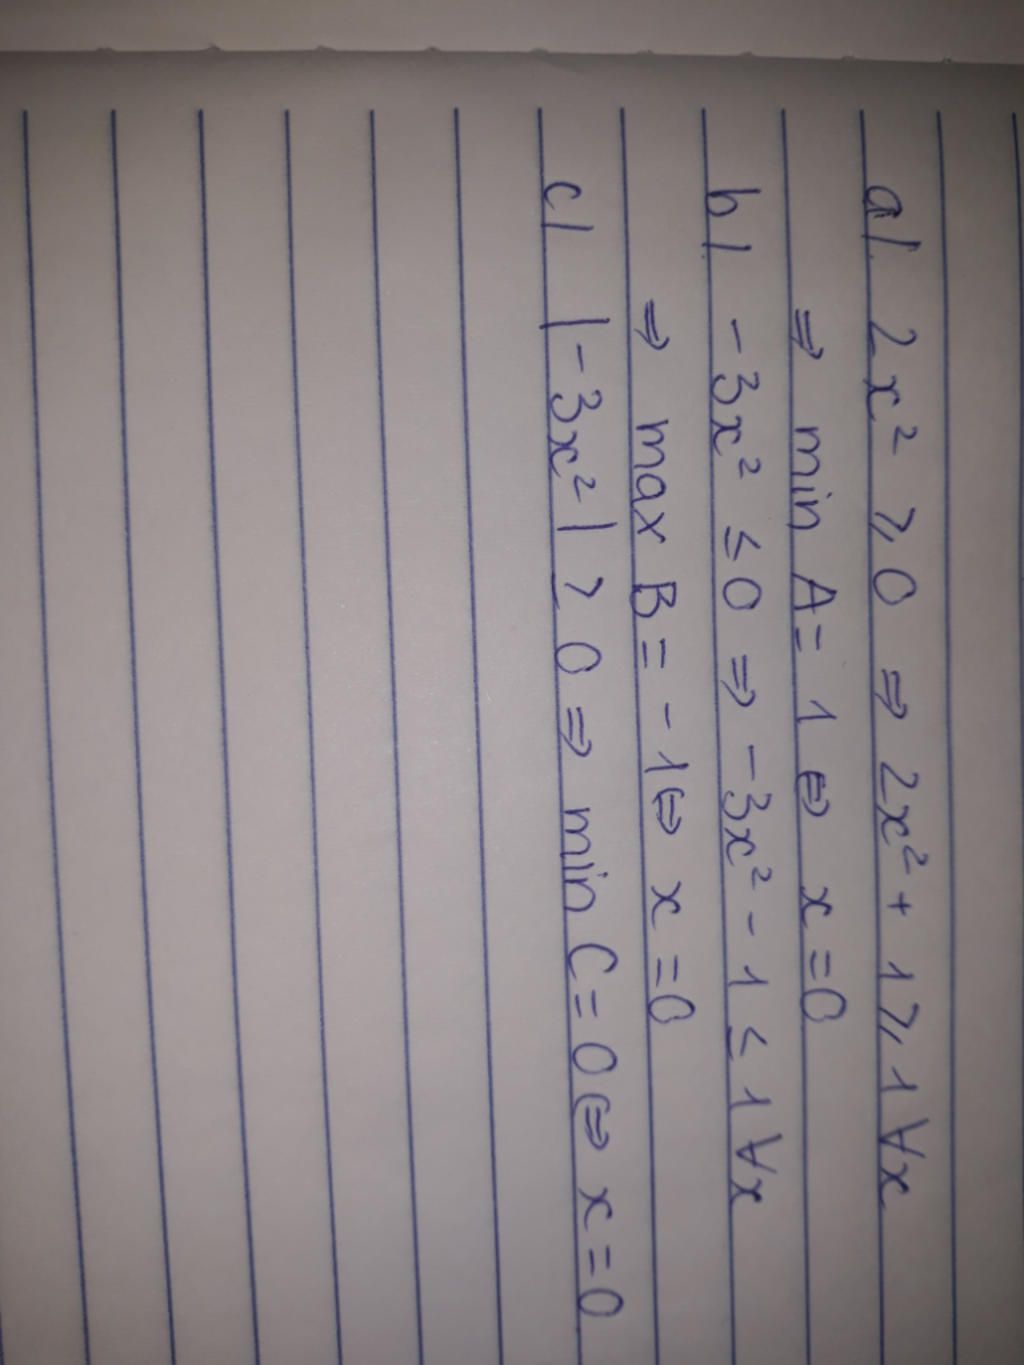 a/. 2x² ≥ 0 ⇒ 2x² + 1 ≥ 1 ∀x
⇒ min A = 1 ⇔ x = 0
b/. -3x² ≤ 0 ⇒ -3x² - 1 ≤ 1 ∀x
⇒ max B = -1 ⇔ x = 0
c/ |-3x²| ≥ 0 ⇒ min C = 0 ⇔ x = 0